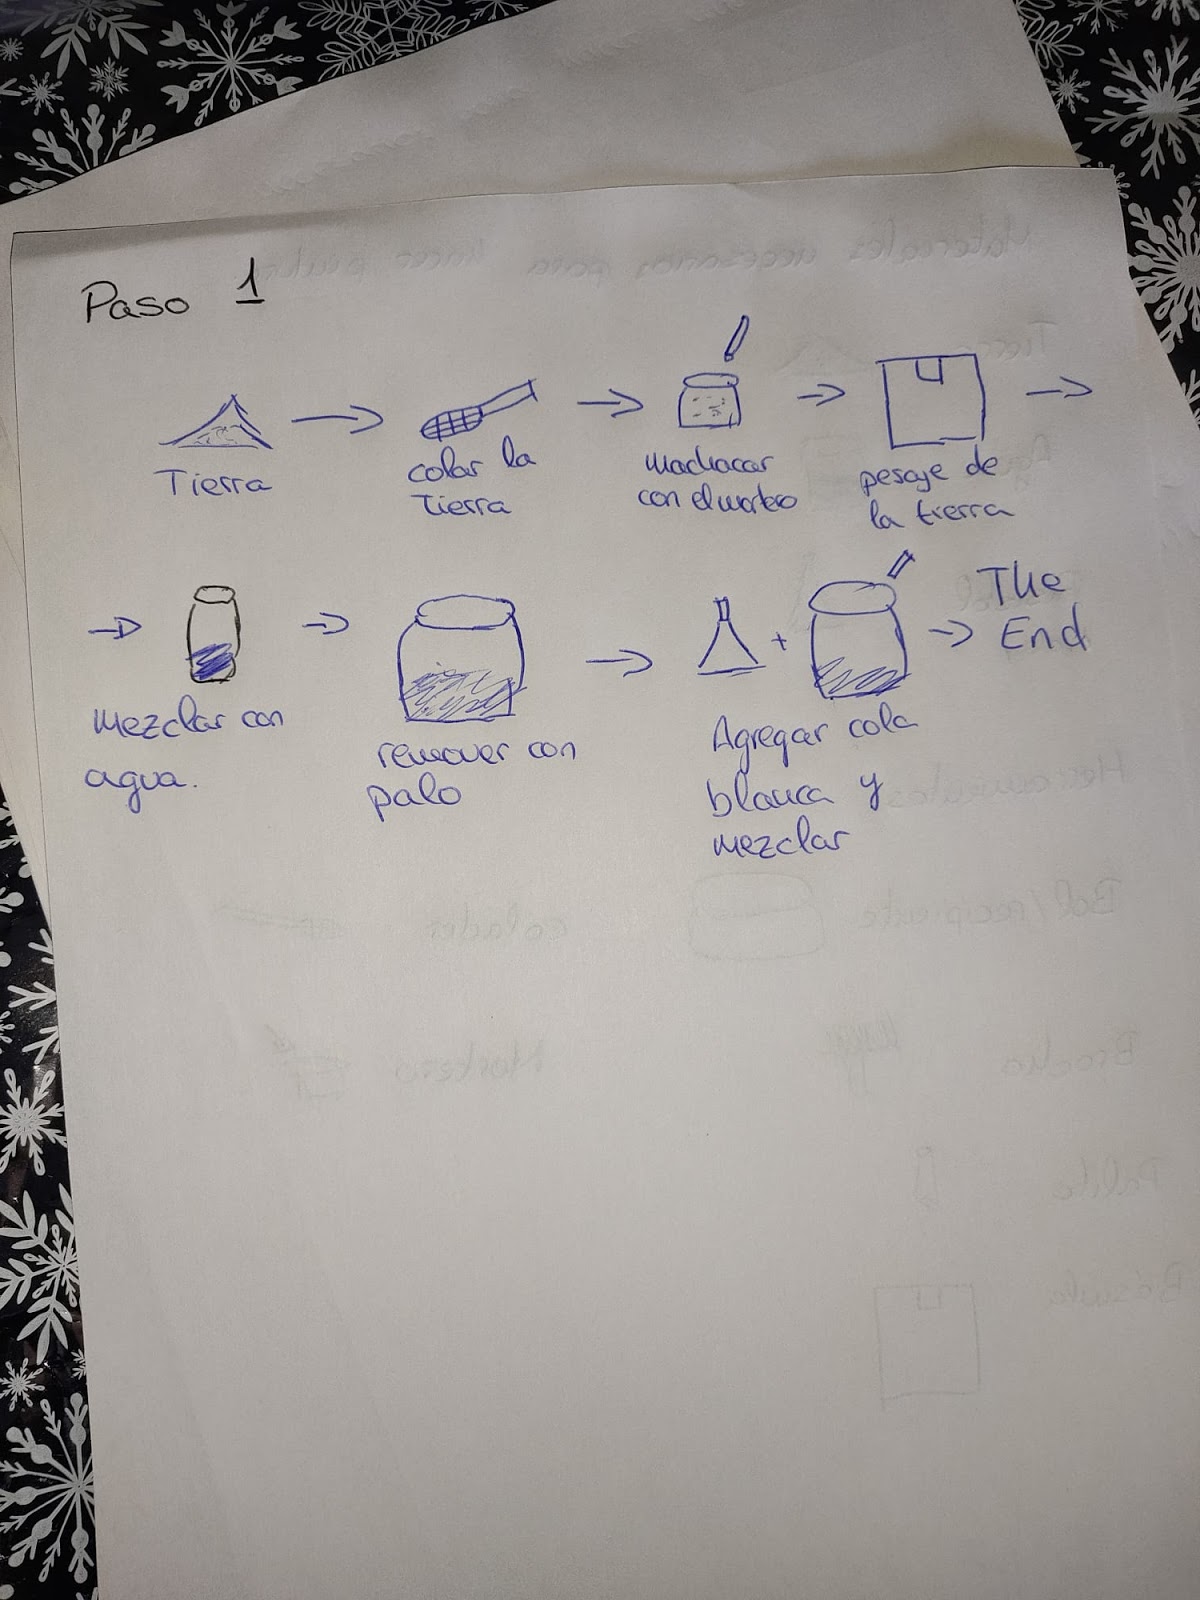 Paso 1
Tierra
colar la
Tierra
machacar
con el mortero
pesaje de
la tierra
mezclar con
agua.
remover con
palo
+
Agregar cola
blanca y
mezclar
The
End